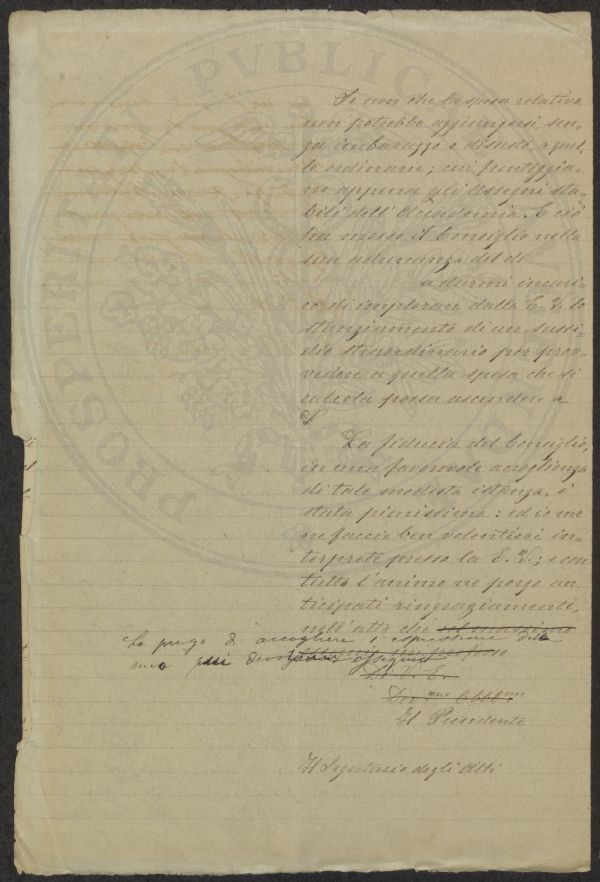 Se non che la spesa relativa
non potrebbe aggiungersi sen=
za imbarazzo e dissesto, a quel=
le ordinarie; cui fronteggia=
no appena gli assegni sta=
bili dell'Accademia. E ciò
ha messo il Consiglio nella
sua adunanza del dì
a darmi incari=
co di implorare dalla E. V. lo
stanziamento di un sussi=
dio straordinario per prov=
vedere a quella spesa che si
calcola possa ascendere a
£
La fiducia del Consiglio,
in una favorevole accoglienza
di tale modesta istanza, è
stata pienissima: ed io me
ne faccio ben volentieri in=
terprete presso la E. V.; e con
tutto l'animo ne porgo an=
ticipati ringraziamenti,
nell'atto che col massimo
La prego di accogliere l'espressione della
mio più devoto ossequio
Di V. E.
Dev.mo Obbl.mo
Il Presidente
Il Segretario degli Atti
PROSPERITATI PVBLIC